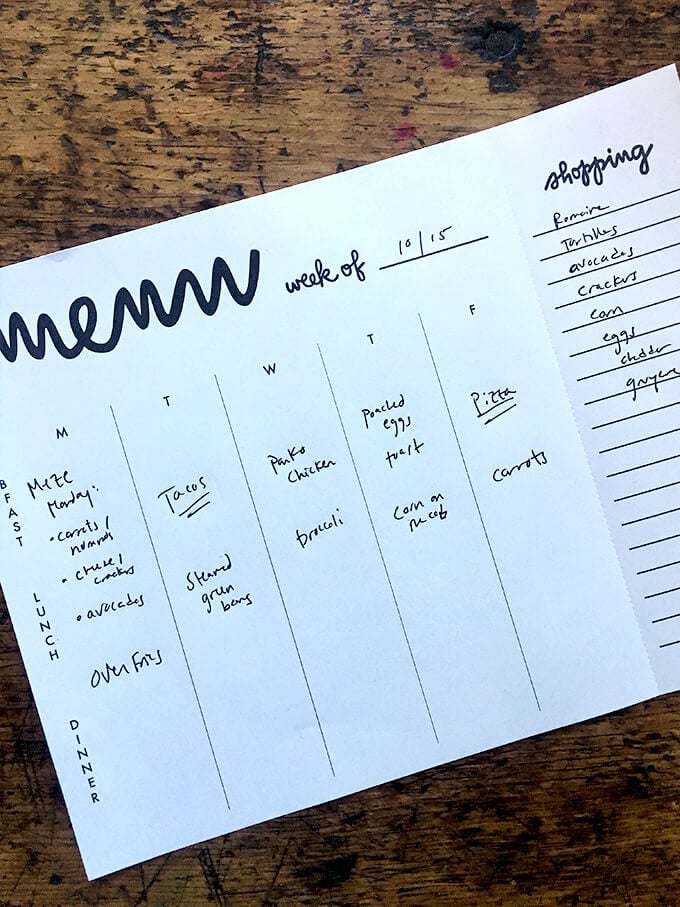 menu
week of 10/15
M
T
W
T
F
BFAST
LUNCH
DINNER
Meze
Monday:
• carrots/
hummus
• cheese/
crackers
• avocados
Oven Fries
Tacos
Steamed
green
beans
Panko
Chicken
broccoli
poached
eggs
toast
Corn on
the cob
Pizza
carrots
shopping
Romaine
Tortillas
avocados
crackers
corn
eggs
cheddar
gruyere